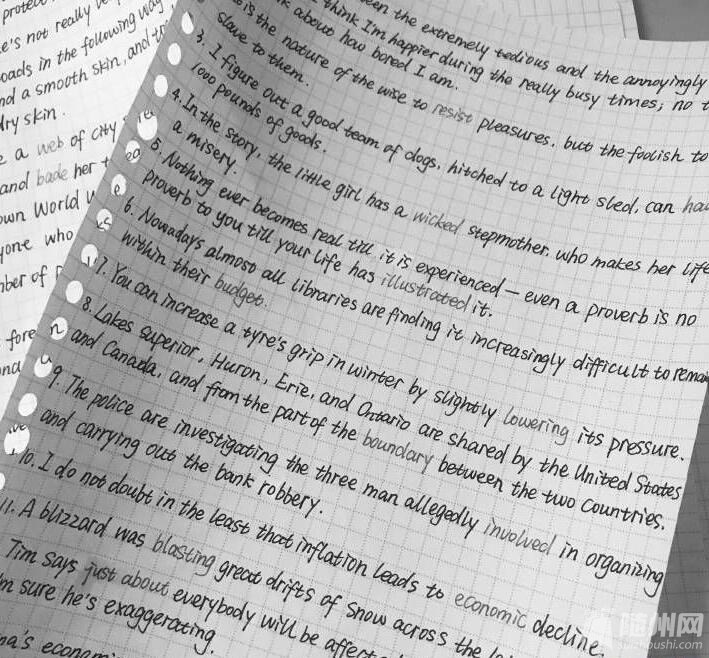 protect
e's not really
oads in the following way
nd a smooth skin, and
dry skin.
a web of city
and bade her
own World
yone who
ber of
fore
een the extremely tedious and the annoyingly
think I'm happier during the really busy times; no
about how bored I am.
is the nature of the wise to resist pleasures, but the foolish to
slave to them.
3. I figure out a good team of dogs, hitched to a light sled, can
1000 pounds of goods.
4. In the story, the little girl has a wicked stepmother, who makes her life
a misery.
5. Nothing ever becomes real till it is experienced — even a proverb is no
proverb to you till your life has illustrated it.
6. Nowadays almost all libraries are finding it increasingly difficult to remain
within their budget.
7. You can increase a tyre's grip in winter by slightly lowering its pressure.
8. Lakes Superior, Huron, Erie, and Ontario are shared by the United States
and Canada, and from the part of the boundary between the two countries.
9. The police are investigating the three man allegedly involved in organizing
and carrying out the bank robbery.
10. I do not doubt in the least that inflation leads to economic decline.
11. A blizzard was blasting great drifts of snow across the
Tim says just about everybody will be affec
'm sure he's exaggerating.
na's econom
随州网
suizhoushi.com